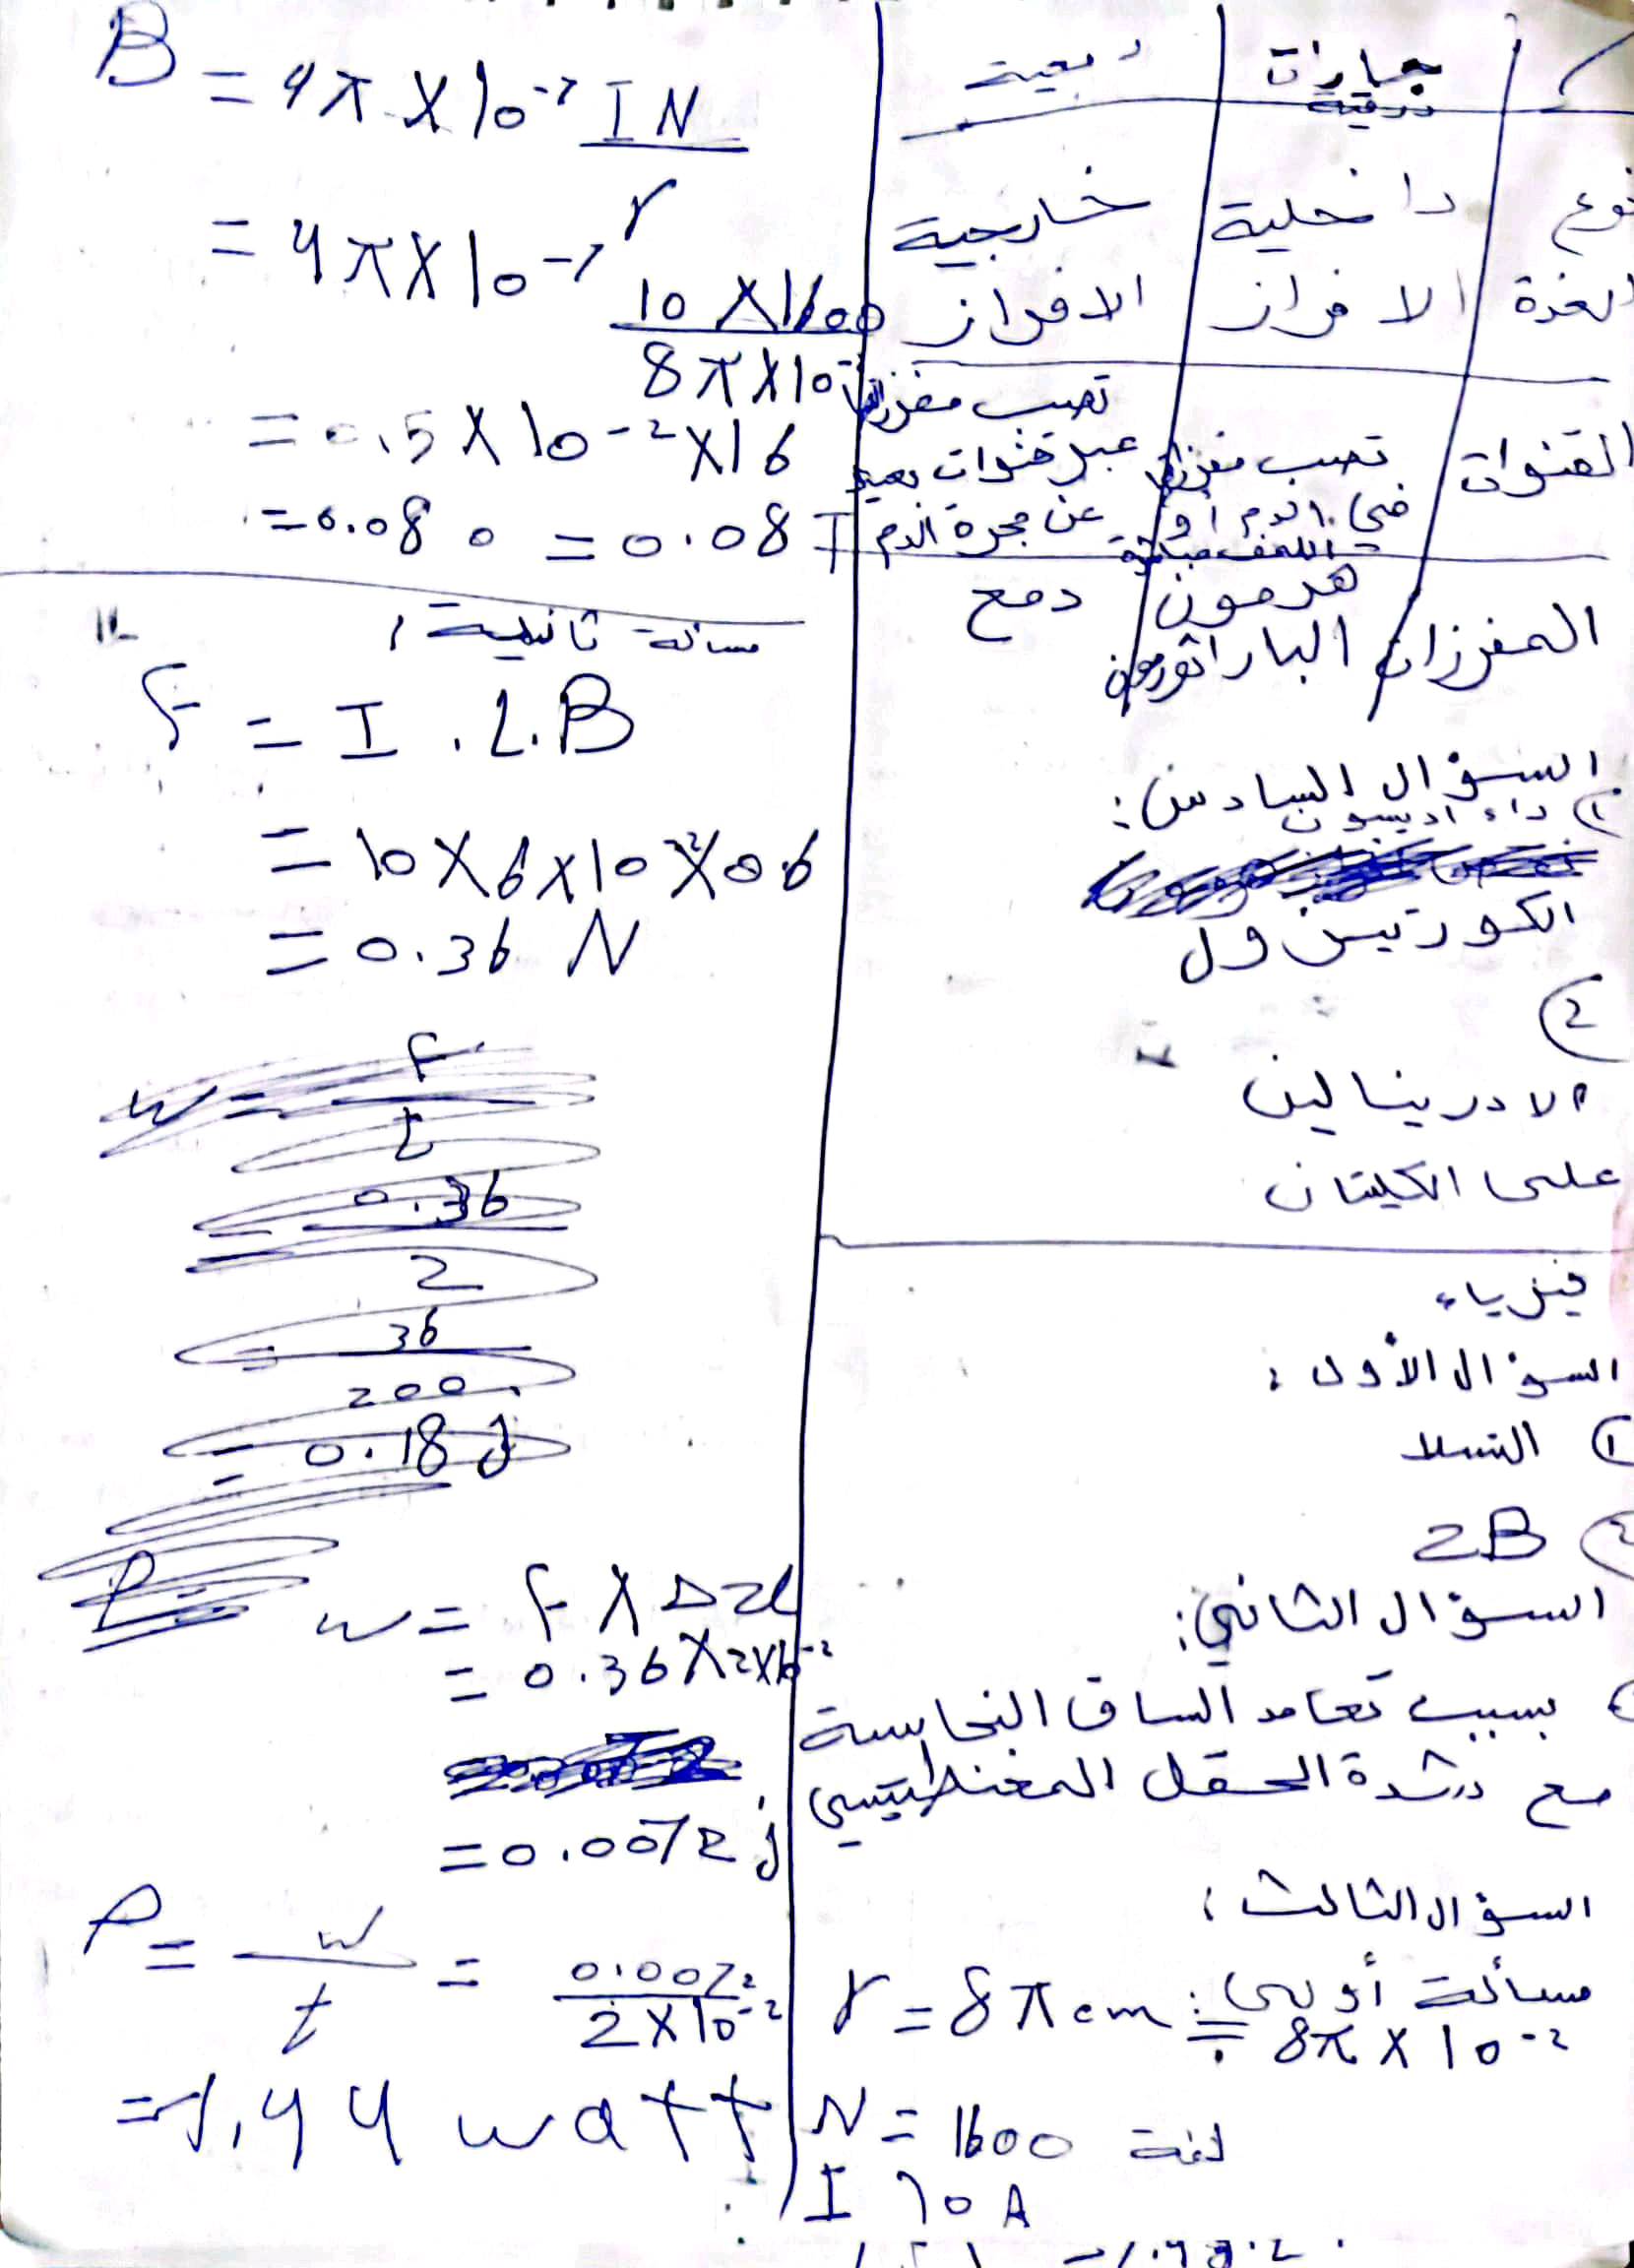 جارات درقية	دمعية
نوع الغدة	داخلية الافراز	خارجية الافراز
القنوات	تصب مفرزاتها في الدم أو اللمف مباشرة	تصب مفرزاتها عبر قنوات بعيد عن مجرة الدم
المفرزات	هرمون الباراثورمون	دمع
السؤال السادس:
1) داء اديسون
الكورتيزول
2
الادرينالين
على الكليتان
فيزياء
السؤال الأول:
1) التسلا
2) 2B
السؤال الثاني:
بسبب تعامد الساق النحاسية
مع شدة الحقل المغنطيسي
السؤال الثالث:
مسألة أولى:
r = 8π cm = 8π × 10⁻²
N = 1600 لفة
I 10 A
B = 4π × 10⁻⁷ IN / r
= 4π × 10⁻⁷ 10 × 1600 / 8π × 10⁻²
= 0.5 × 10⁻² × 16
= 0.080 = 0.08 T
مسالة ثانية:
F = I . L . B
= 10 × 6 × 10⁻² × 0.6
= 0.36 N
w = F / t
= 0.36 / 2
= 36 / 200
= 0.18 J
P =
w = F × Δx
= 0.36 × 2 × 10⁻²
= 0.0072 j
P = w / t = 0.0072 / 2 × 10⁻²
= 1.44 watt